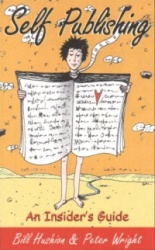 Self Publishing
An Insider's Guide
Bill Hushion & Peter Wright